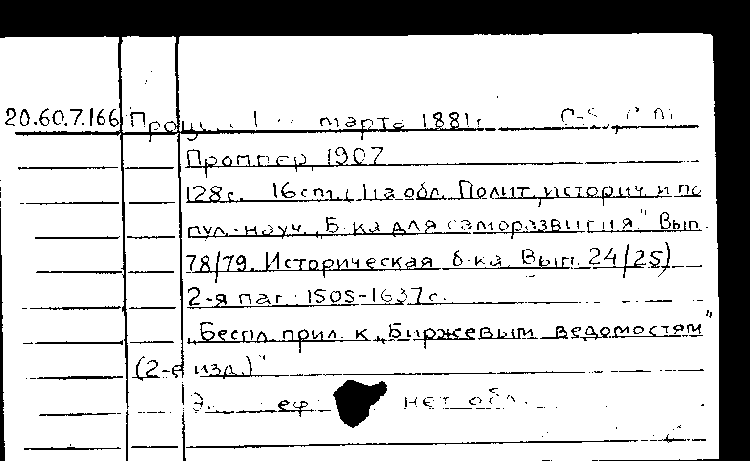 20.60.7.166 марта 1881г.
Проппер, 1907
128с. 16см. (На обл. Полит., историч. и по
пул.-науч. „Б-ка для саморазвития." Вып.
78/79. Историческая б-ка. Вып. 24/25)
2-я паг.: 1505-1637с.
„Беспл. прил. к „Биржевым ведомостям"
(2-е изд.)"
нет обл.